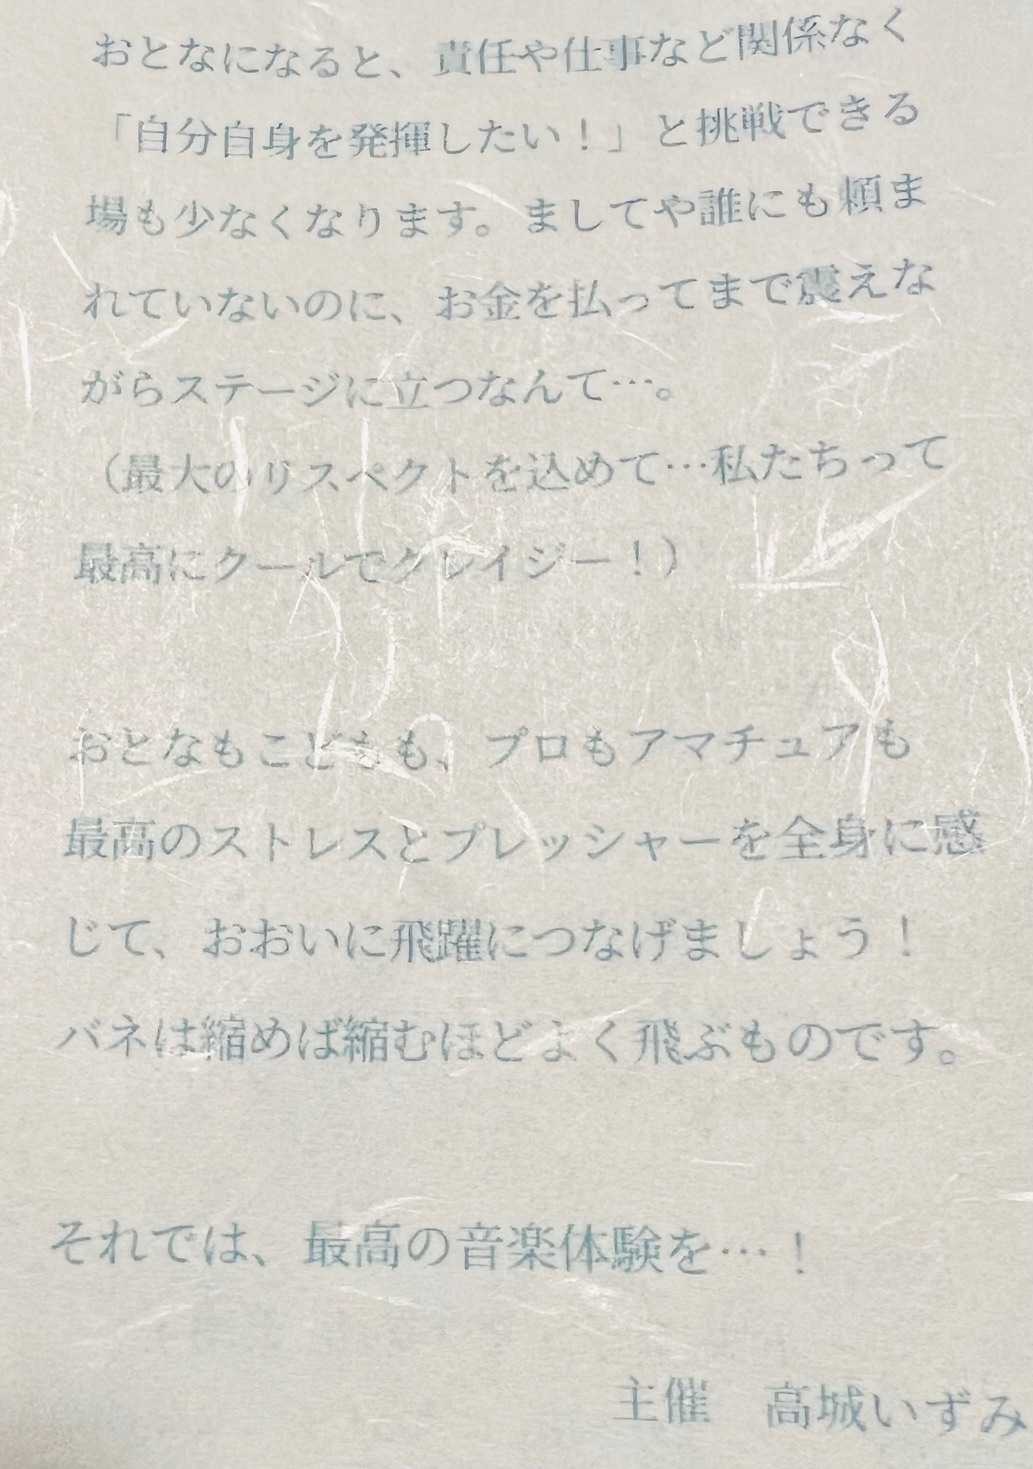 おとなになると、責任や仕事など関係なく
「自分自身を発揮したい！」と挑戦できる
場も少なくなります。ましてや誰にも頼ま
れていないのに、お金を払ってまで震えな
がらステージに立つなんて…。
（最大のリスペクトを込めて…私たちって
最高にクールでクレイジー！）
おとなもこどもも、プロもアマチュアも
最高のストレスとプレッシャーを全身に感
じて、おおいに飛躍につなげましょう！
バネは縮めば縮むほどよく飛ぶものです。
それでは、最高の音楽体験を…！
主催　高城いずみ